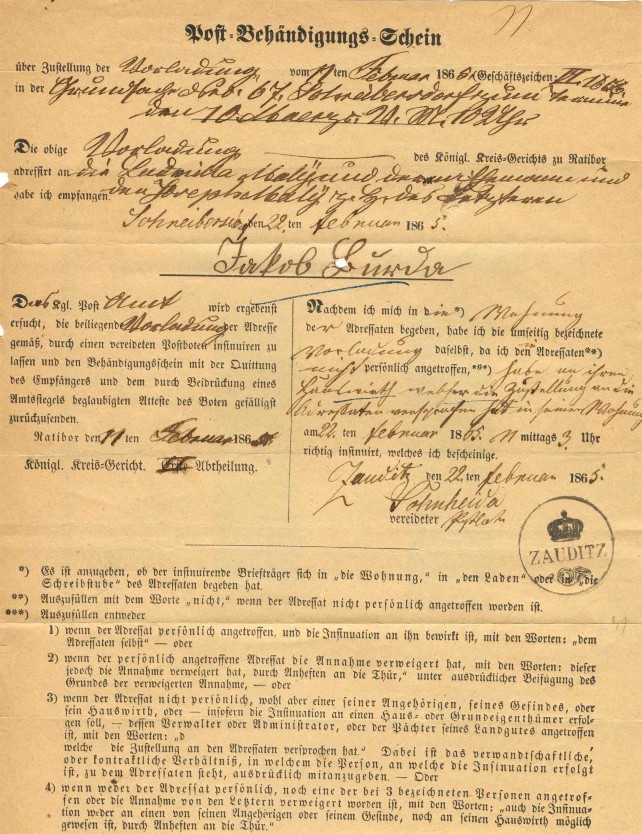 Post-Behändigungs-Schein
über Zustellung der Vorladung vom 11ten Februar 1865. Geschäftszeichen: VI.
in der Grundsache
den 10. Maerz. V. M. 10 Uhr
Die obige Vorladung des Königl. Kreis-Gerichts zu Ratibor
adressirt an die Ludmilla und Ehemann und
habe ich empfangen. den Joseph Letzteren
den 22.ten Februar 1865.
Jakob Burda
Das Kgl. Post Amt wird ergebenst
ersucht, die beiliegende Vorladung der Adresse
gemäß, durch einen vereideten Postboten insinuiren zu
lassen und den Behändigungsschein mit der Quittung
des Empfängers und dem durch Beidrückung eines
Amtssiegels beglaubigten Atteste des Boten gefälligst
zurückzusenden.
Ratibor den 11 ten Februar 1865.
Königl. Kreis-Gericht. Abtheilung.
Nachdem ich mich in die *) Wohnung
der Adressaten begeben, habe ich die umseitig bezeichnete
Vorladung daselbst, da ich den Adressaten **)
nicht persönlich angetroffen, ***) habe an ihren
Hauswirth welcher die Zustellung an die
Adressaten versprochen hat in seiner Wohnung
am 22. ten Februar 1865. N mittags 3 Uhr
richtig insinuirt, welches ich bescheinige.
Zauditz den 22. ten Februar 1865.
vereideter
ZAUDITZ
*) Es ist anzugeben, ob der insinuirende Briefträger sich in „die Wohnung,“ in „den Laden“ oder in „die
Schreibstube“ des Adressaten begeben hat.
**) Auszufüllen mit dem Worte „nicht,“ wenn der Adressat nicht persönlich angetroffen worden ist.
***) Auszufüllen entweder
1) wenn der Adressat persönlich angetroffen, und die Insinuation an ihn bewirkt ist, mit den Worten: „dem
Adressaten selbst“ — oder
2) wenn der persönlich angetroffene Adressat die Annahme verweigert hat, mit den Worten: dieser
jedoch die Annahme verweigert hat, durch Anheften an die Thür,“ unter ausdrücklicher Beifügung des
Grundes der verweigerten Annahme, — oder
3) wenn der Adressat nicht persönlich, wohl aber einer seiner Angehörigen, seines Gesindes, oder
sein Hauswirth, oder — insofern die Insinuation an einen Haus- oder Grundeigenthümer erfol-
gen soll, — dessen Verwalter oder Administrator, oder der Pächter seines Landgutes angetroffen
ist, mit den Worten: „d
welche die Zustellung an den Adressaten versprochen hat.“ Dabei ist das verwandtschaftliche,
oder kontraktliche Verhältniß, in welchem die Person, an welche die Insinuation erfolgt
ist, zu dem Adressaten steht, ausdrücklich mitanzugeben. — Oder
4) wenn weder der Adressat persönlich, noch eine der bei 3 bezeichneten Personen angetrof-
fen oder die Annahme von den Letztern verweigert worden ist, mit den Worten: „auch die Insinua-
tion weder an einen von seinen Angehörigen oder seinem Gesinde, noch an seinen Hauswirth möglich
gewesen ist, durch Anheften an die Thür.“